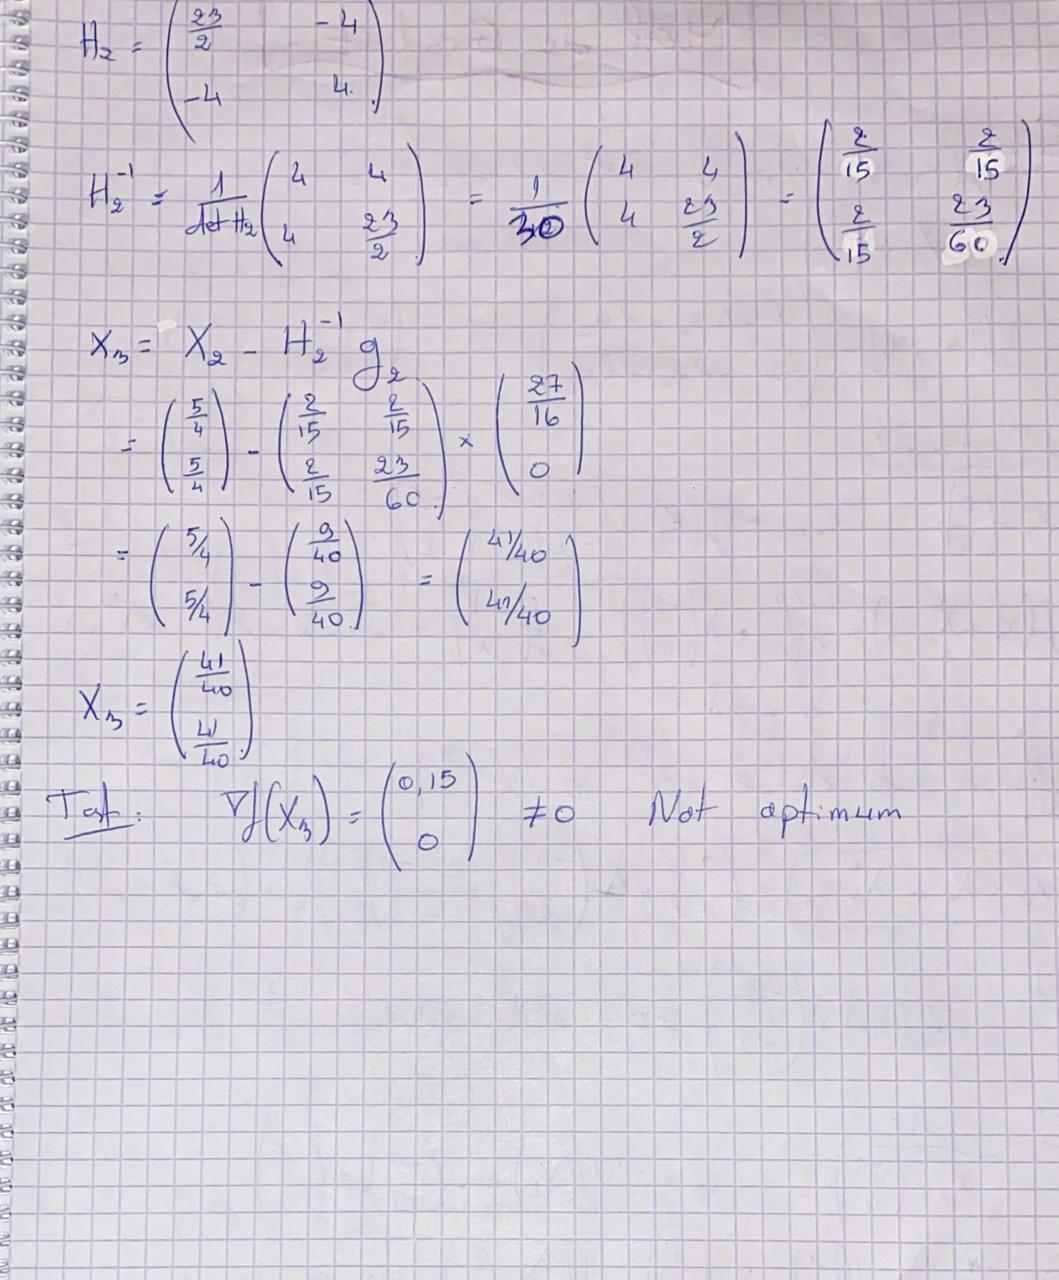 H₂ = ( 23/2 -4 ; -4 4 )
H₂⁻¹ = 1/det H₂ ( 4 4 ; 4 23/2 ) = 1/30 ( 4 4 ; 4 23/2 ) = ( 2/15 2/15 ; 2/15 23/60 )
X₃ = X₂ - H₂⁻¹ g₂
= ( 5/4 ; 5/4 ) - ( 2/15 2/15 ; 2/15 23/60 ) × ( 27/16 ; 0 )
= ( 5/4 ; 5/4 ) - ( 9/40 ; 9/40 ) = ( 41/40 ; 41/40 )
X₃ = ( 41/40 ; 41/40 )
Test : ∇f(X₃) = ( 0,15 ; 0 ) ≠0 Not optimum